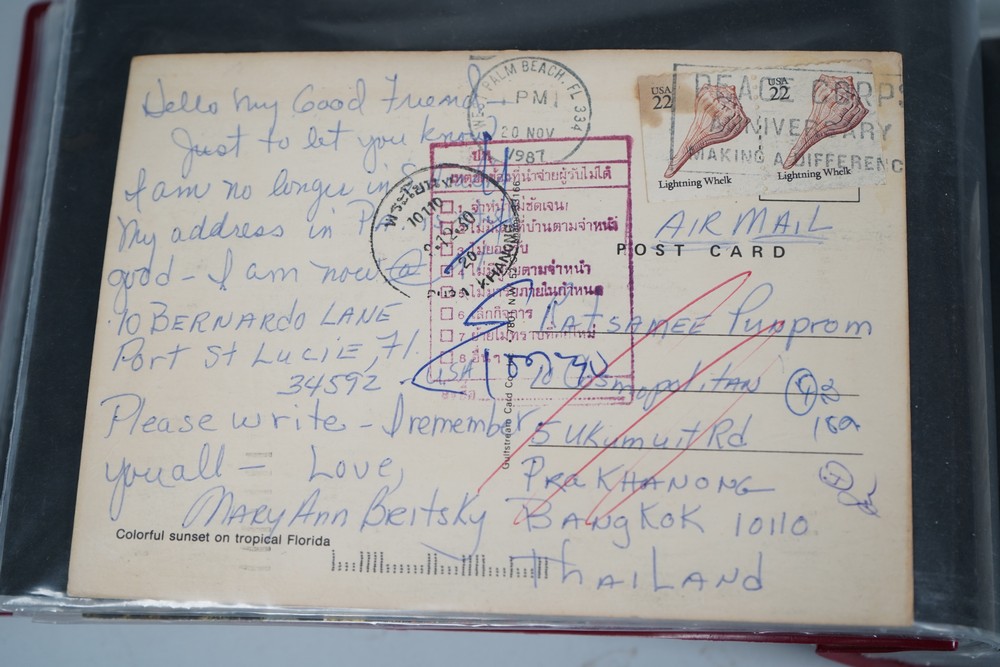 Hello My Good Friend -
Just to let you know
I am no longer in
My address in
good - I am now @
10 BERNARDO LANE
Port St Lucie, Fl.
34592 - USA
Please write - I remember
you all - Love,
Mary Ann Britsky
Colorful sunset on tropical Florida
PALM BEACH, FL 334
PM
20 NOV
1987
USA
22
Lightning Whelk
USA
22
Lightning Whelk
PEACE CORPS
ANNIVERSARY
MAKING A DIFFERENCE
AIR MAIL
POST CARD
Katsanee Punprom
% Cosmopolitan
5 Ukumuit Rd
Pra KHANONG
BANGKOK 10110
THAILAND
พระโขนง
10110
KHANONG
เหตุขัดข้องที่นำจ่ายผู้รับไม่ได้
1. จ่าหน้าไม่ชัดเจน
2. ไม่มีเลขที่บ้านตามจ่าหน้า
3. ไม่ยอมรับ
4. ไม่มีผู้รับตามจ่าหน้า
5. ไม่มารับภายในกำหนด
6. เลิกกิจการ
7. ย้ายไม่ทราบที่อยู่ใหม่
8. อื่นๆ
Gulfstream Card Co.